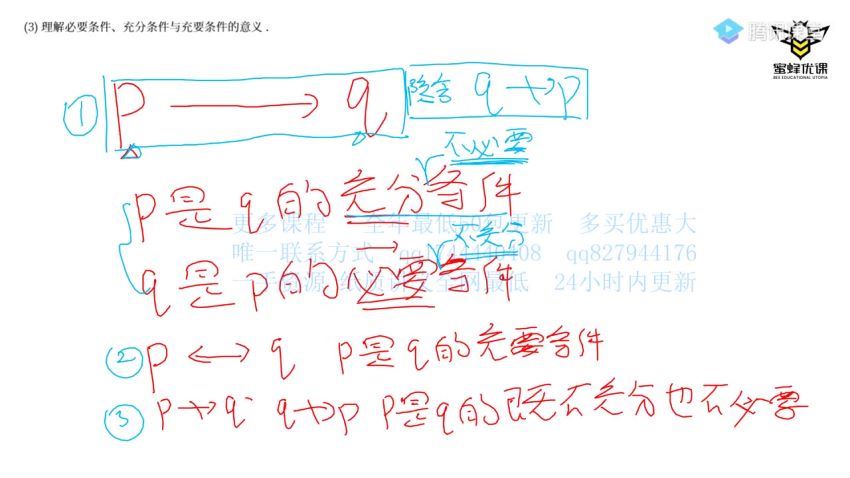 (3) 理解必要条件、充分条件与充要条件的意义.
腾讯课堂
蜜蜂优课
BEE EDUCATIONAL UTOPIA
① p → q 隐含 q ↛ p
不必要
p是q的充分条件
更多课程 全年最低 更新 多买优惠大
不充分
唯一联系方式 qq827944176
q是p的必要条件
24小时内更新
② p ↔ q p是q的充要条件
③ p ↛ q q ↛ p p是q的既不充分也不必要